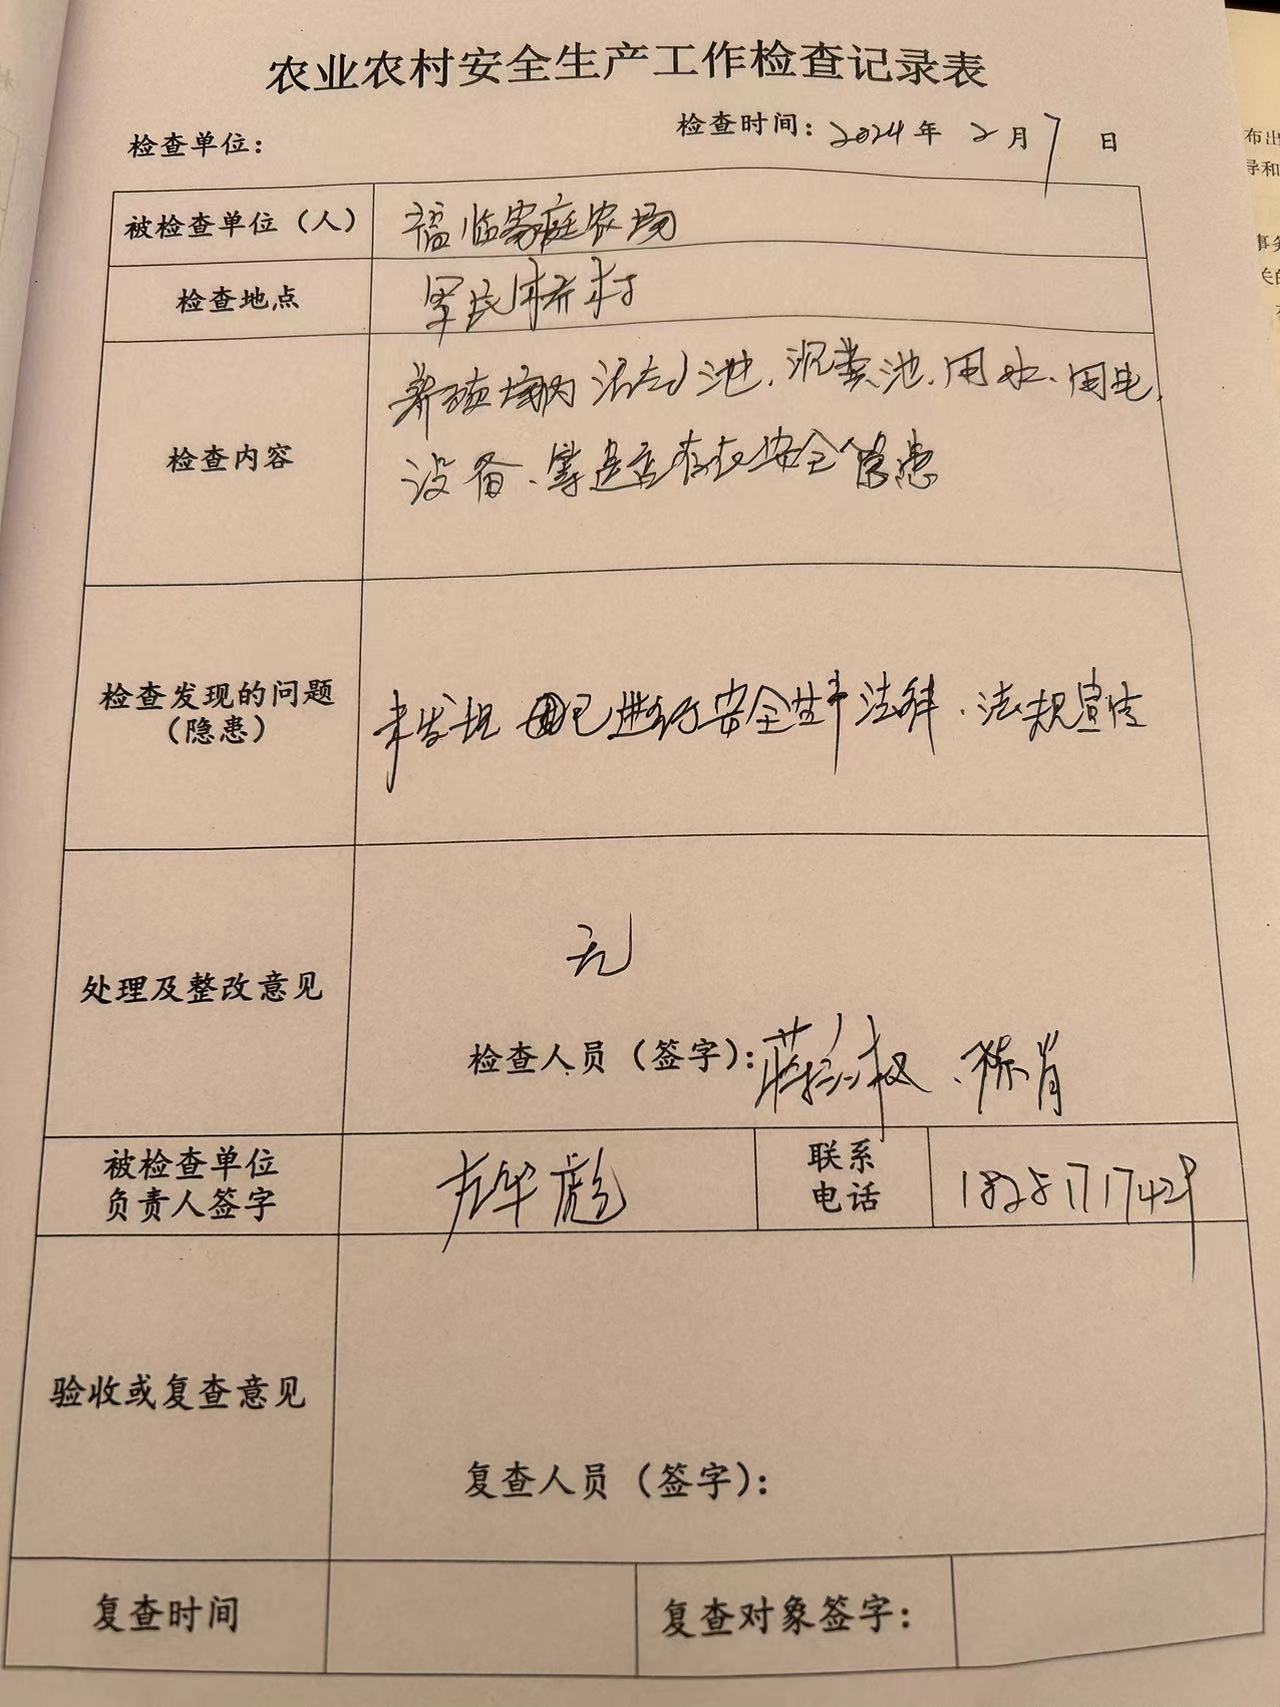 农业农村安全生产工作检查记录表
检查单位：
检查时间：2024年 2月7日
被检查单位（人） 福临家庭农场
检查地点 军民桥村
检查内容 养殖场内沼气池、沉粪池、用水、用电、
设备、等是否存在安全隐患
检查发现的问题
（隐患） 未发现 已进行安全生产法律、法规宣传
处理及整改意见 无
检查人员（签字）： 陈肖
被检查单位
负责人签字
联系
电话 18251717429
验收或复查意见
复查人员（签字）：
复查时间
复查对象签字：
布出
导和